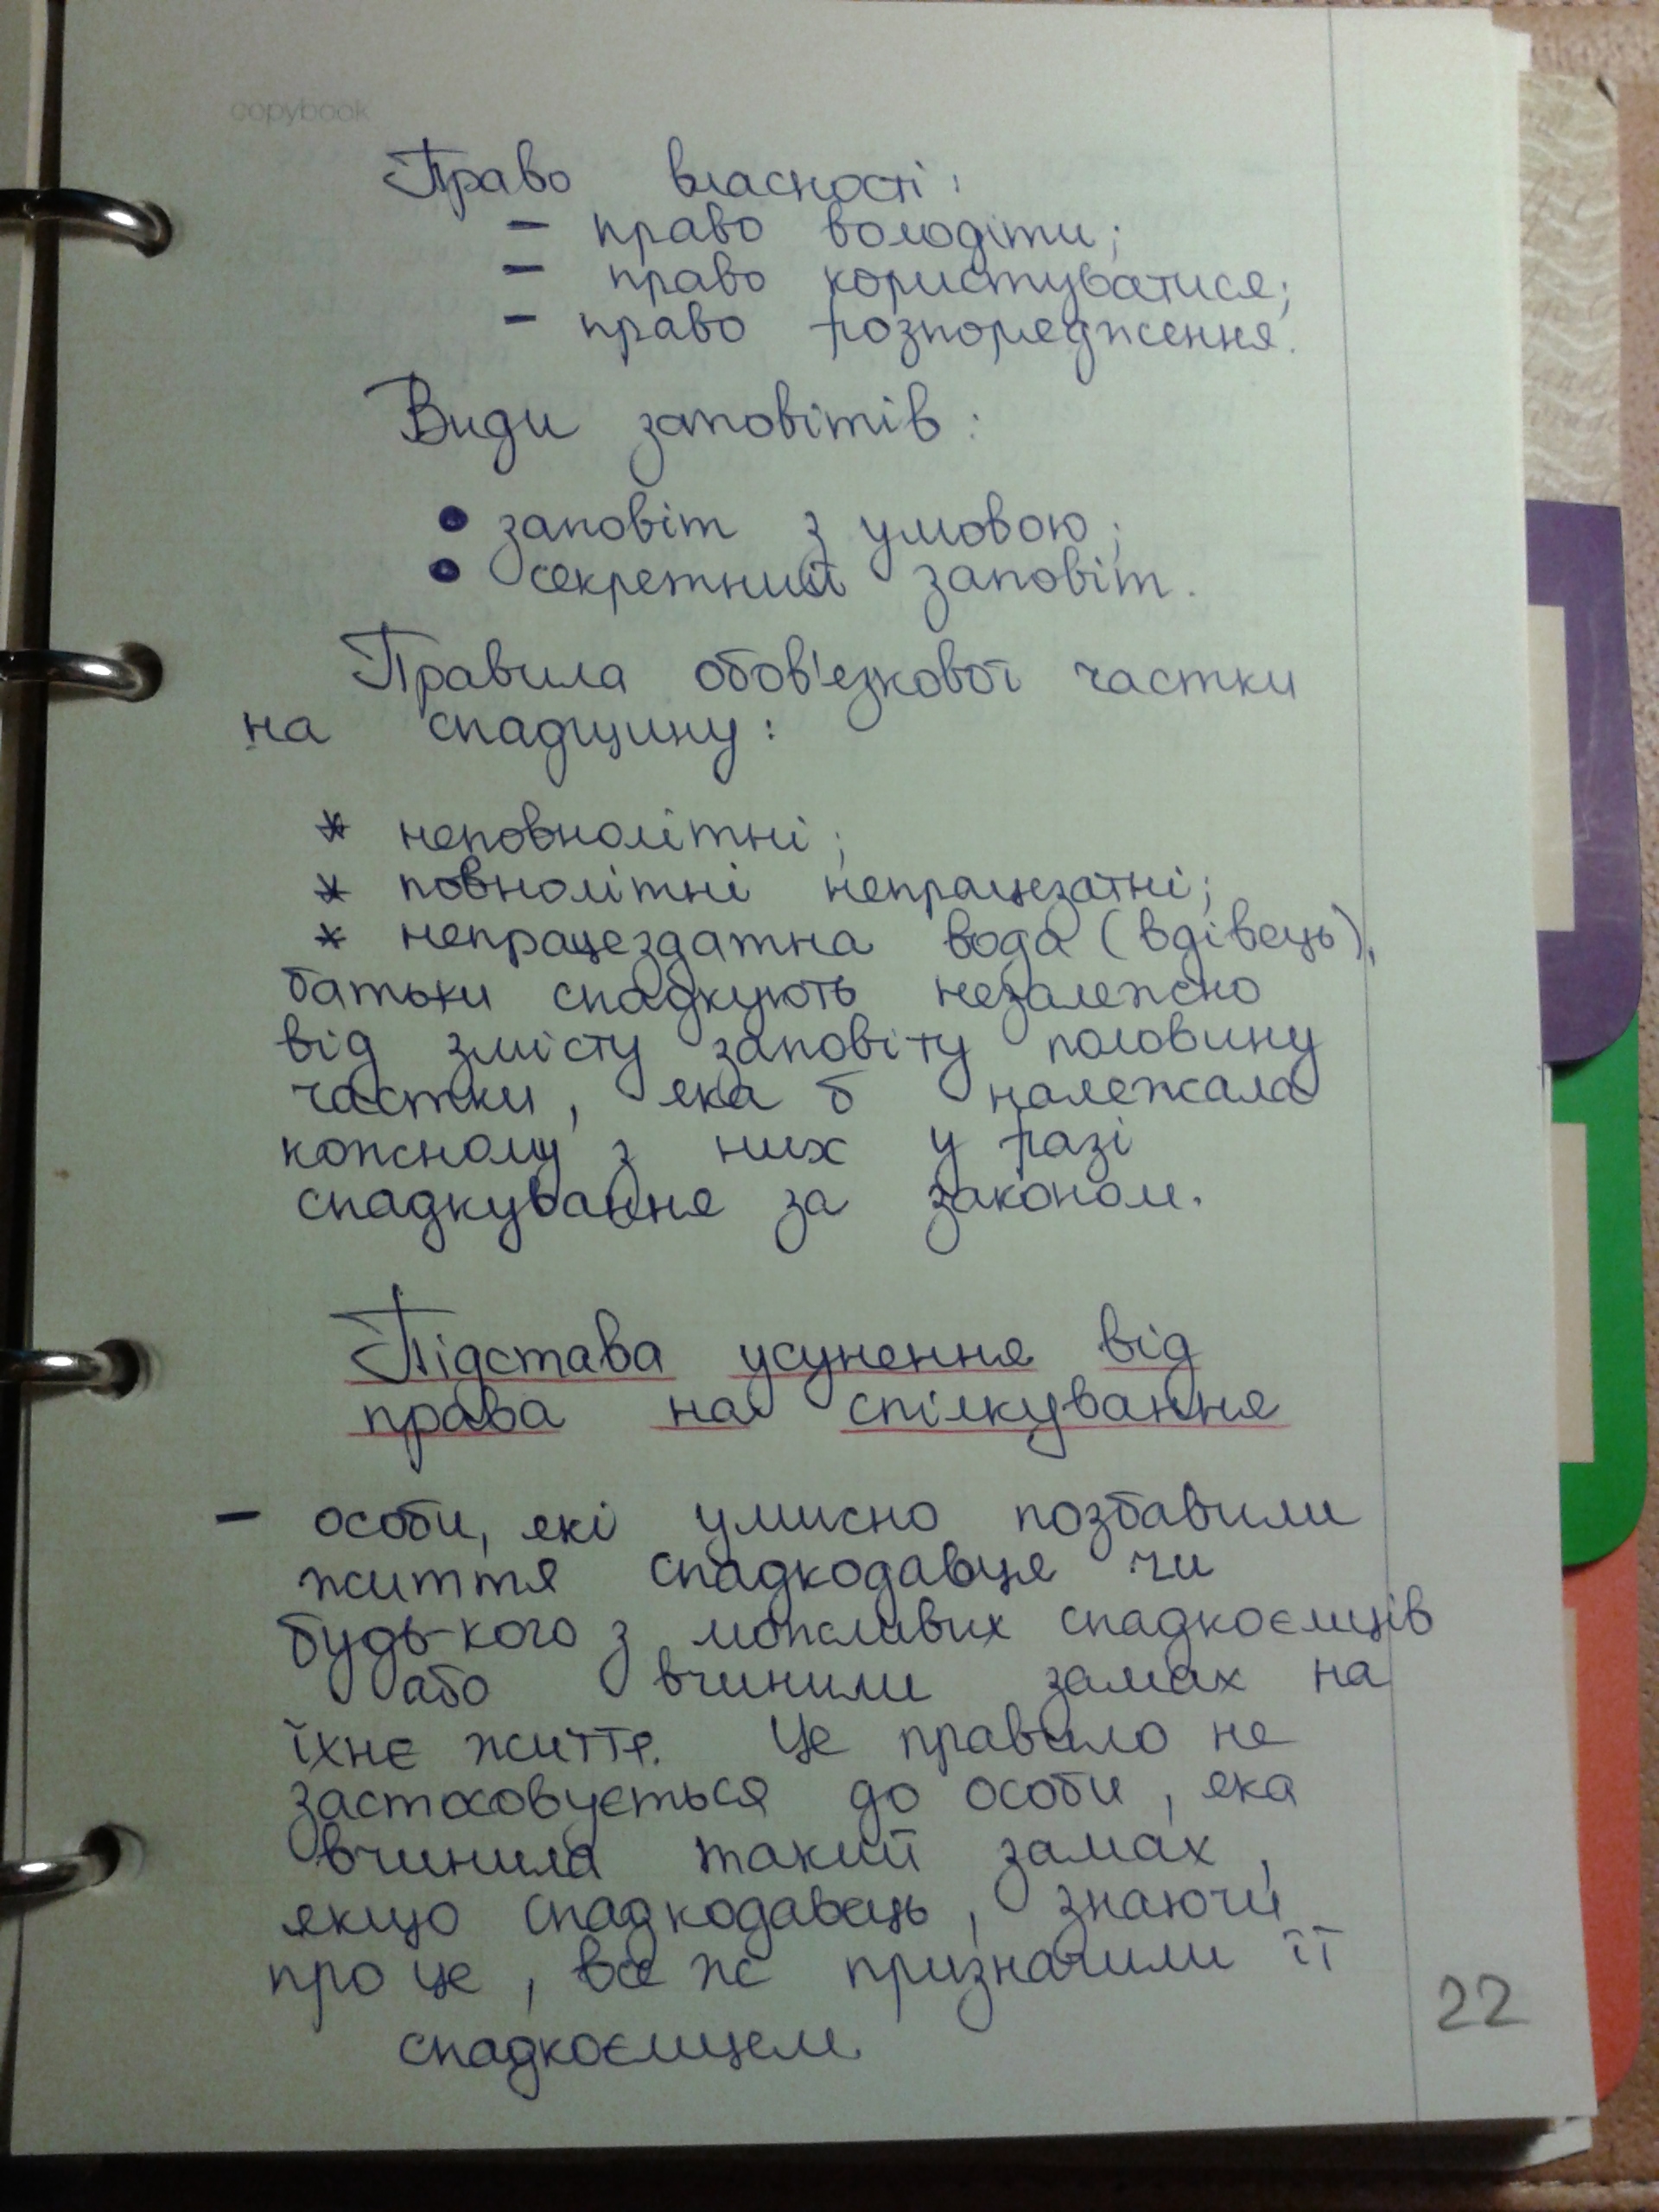 copybook
Право власності:
- право володіти;
- право користуватися;
- право розпорядження.
Види заповітів:
• заповіт з умовою;
• секретний заповіт.
Правила обов'язкової частки
на спадщину:
* неповнолітні;
* повнолітні непрацезатні;
* непрацездатна вода (вдівець),
батьки спадкують незалежно
від змісту заповіту половину
частки, яка б належала
кожному з них у разі
спадкування за законом.
Підстава усунення від
права на спілкування
- особи, які умисно позбавили
життя спадкодавця чи
будь-кого з можливих спадкоємців
або вчинили замах на
їхнє життя. Це правило не
застосовується до особи, яка
вчинила такий замах,
якщо спадкодавець, знаючи
про це, все ж призначили її
спадкоємцем
22